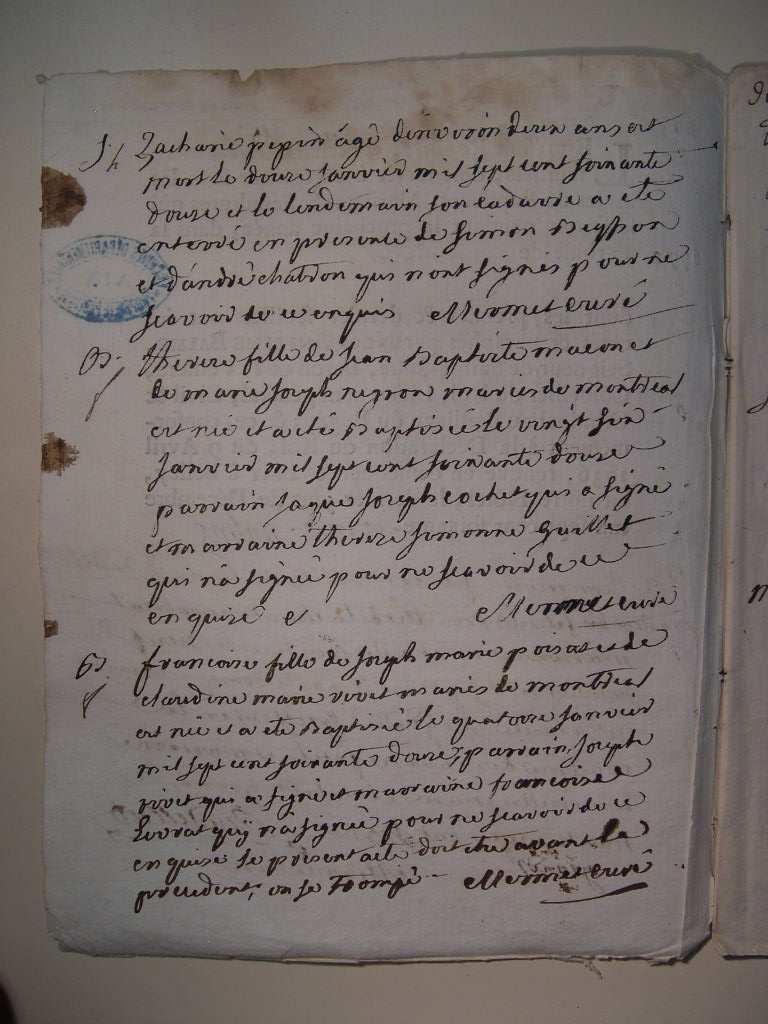 Sh Zacharie pepin âgé d'environ deux ans est
mort le douze janvier mil sept cent soixante
douze et le lendemain son cadavre a eté
enterré en presence de Simon
et d'andré chatron qui n'ont signés pour ne
scavoir de ce enquis Mermet curé
B therese fille de jean Baptiste macon et
de marie joseph negron mariés de montreal
est née et a eté Baptisée le vingt six
janvier mil sept cent soixante douze
parrain jaque joseph cochet qui a signé
et marraine therese simonne Guillet
qui n'a signée pour ne scavoir de ce
enquise et Mermet curé
B francoise fille de joseph marie poisat et de
claudine marie rivet mariés de montreal
est née et a eté Baptisée le quatorze janvier
mil sept cent soixante douze, parrain joseph
rivet qui a signé et marraine francoise
Evrat quÿ n'a signée pour ne scavoir de ce
enquise le present acte doit etre avant le
precedent, on se trompé Mermet curé